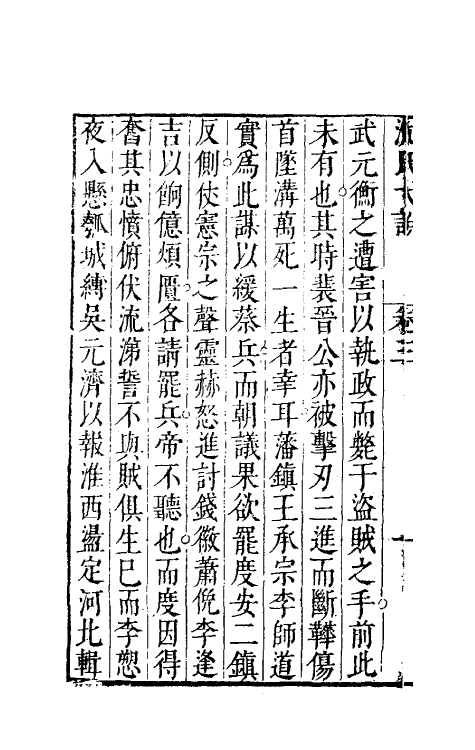 卷三
武元衡之遭害以執政而斃于盜賊之手前此
未有也其時裴晉公亦被擊刃三進而斷鞾傷
首墜溝萬死一生者幸耳藩鎮王承宗李師道
實爲此謀以緩蔡兵而朝議果欲罷度安二鎮
反側仗憲宗之聲靈赫怒進討錢徽蕭俛李逢
吉以餉億煩匱各請罷兵帝不聽也而度因得
奮其忠憤俯伏流涕誓不與賊俱生巳而李愬
夜入懸瓠城縛吳元濟以報淮西盪定河北輯